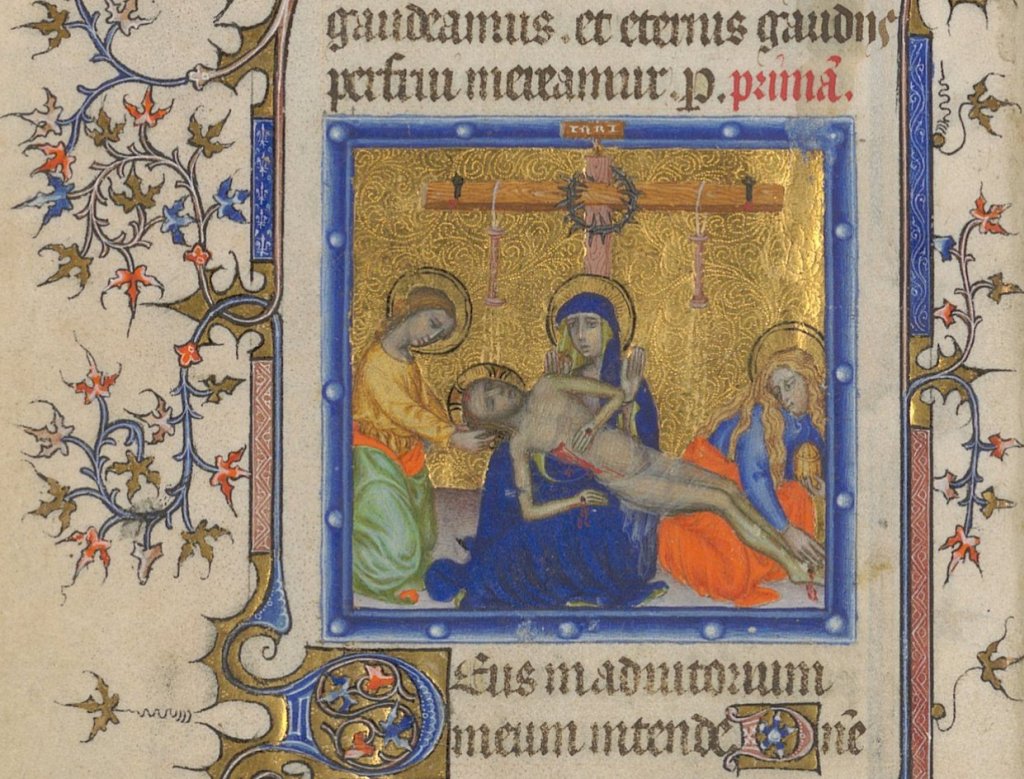 gaudeamus. et eternis gaudiis
perfrui mereamur. P. primā.
INRI
DEus in adiutorium
meum intende Dn̄e